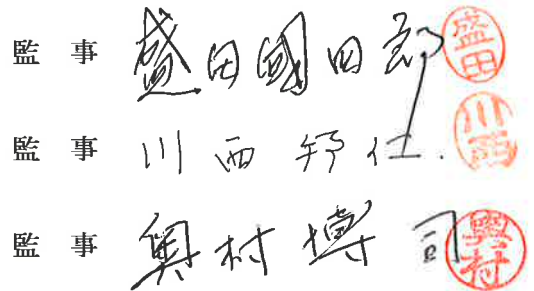 監事 盛田國四郎 盛田
監事 川西 仁 川西
監事 奥村博司 奥村